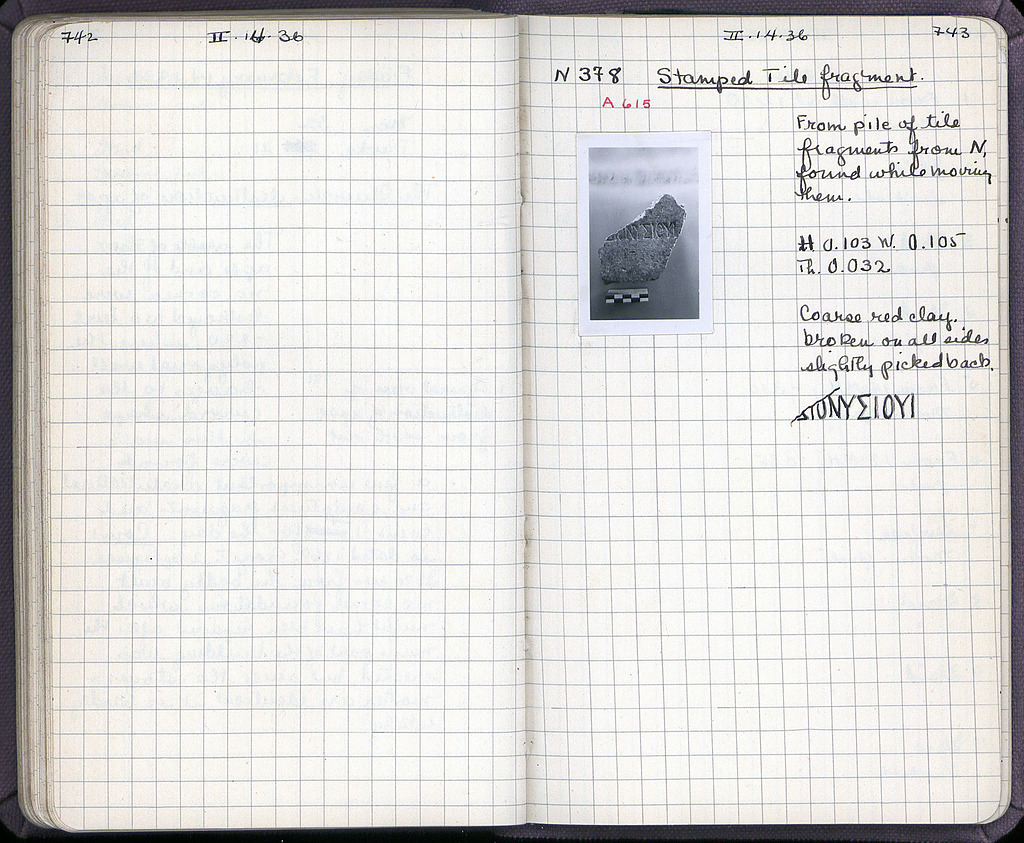 742
II.14.36
II.14.36
743
N 378 Stamped Tile fragment.
A 615
From pile of tile
fragments from N,
found while moving
them.
H 0.103 W. 0.105
Th. 0.032
Coarse red clay.
broken on all sides
slightly picked back.
ΟΝΥΣΙΟΥΙ